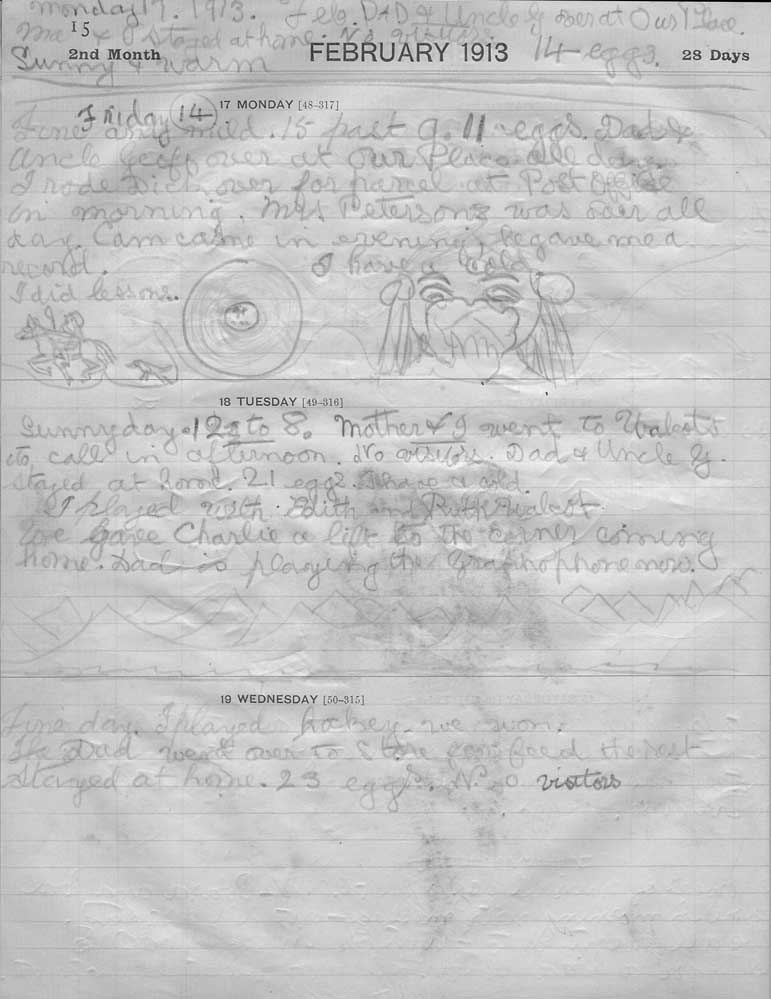 Monday 17. 1913. Feb. DAD & Uncle G over at Our Place.
Me & I stayed at home. No visitors.
15
Sunny & warm
14 eggs.
2nd Month FEBRUARY 1913 28 Days
Friday 14
17 MONDAY [48-317]
Fine and mild. 15 past 9. 11 eggs. Dad &
Uncle Geoff over at our Place all day.
I rode Dick over for parcel at Post Office
in morning. Mrs Petersons was over all
day. Cam came in evening, he gave me a
record. I have a cold
I did lessons.
18 TUESDAY [49-316]
Sunny day. 12 to 8. Mother & I went to
to call in afternoon. No visitors. Dad & Uncle G.
stayed at home 21 eggs. I have a cold.
I played with Edith and Ruth
We Gave Charlie a lift to the corner coming
home. Dad is playing the Graphophone now.
19 WEDNESDAY [50-315]
Fine day. I played hockey we won.
Dad went over to Store for feed the rest
Stayed at home. 23 eggs. No visitors